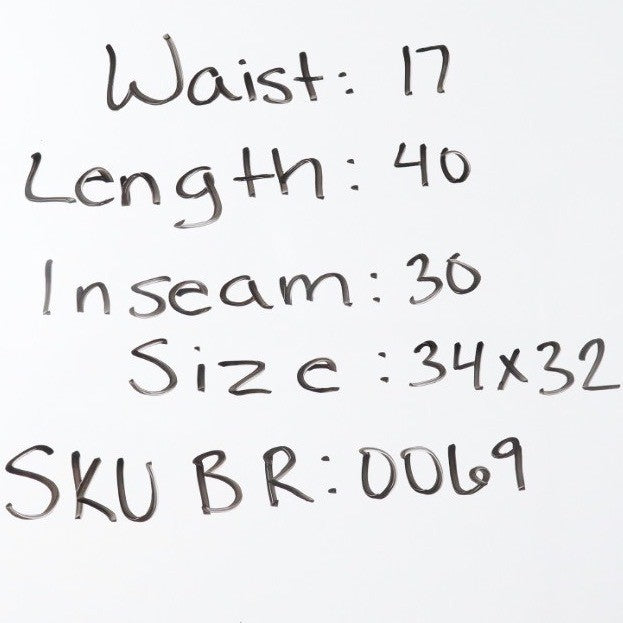 Waist: 17
Length: 40
Inseam: 30
Size: 34x32
SKU BR: 0069